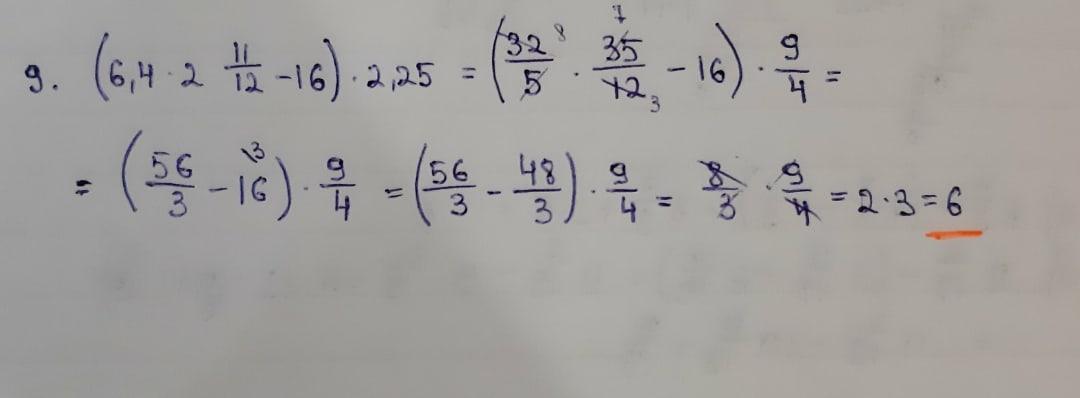 9. (6,4 · 2 11/12 - 16) · 2,25 = (32/5 8 · 7 35/12 3 - 16) · 9/4 =
= (56/3 - 16 \3) · 9/4 = (56/3 - 48/3) · 9/4 = 8/3 · 9/4 = 2·3 = 6